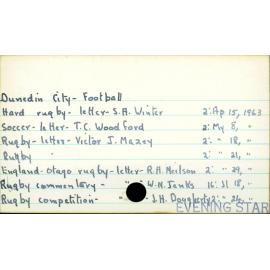 Dunedin City - Football
Hard rugby - letter - S.A. Winter 2: Ap 15, 1963
Soccer - letter - T.C. Wood Ford 2: My 8, "
Rugby - letter - Victor J. Maxey 2: " 18, "
Rugby " 2: " 21, "
England - Otago rugby - letter - R.H. Neilson 2: " 29, "
Rugby commentary - " " W.N. Janks 16: Jl 18, "
Rugby competition - " " J.H. Dougherty 2: " 24, "
EVENING STAR